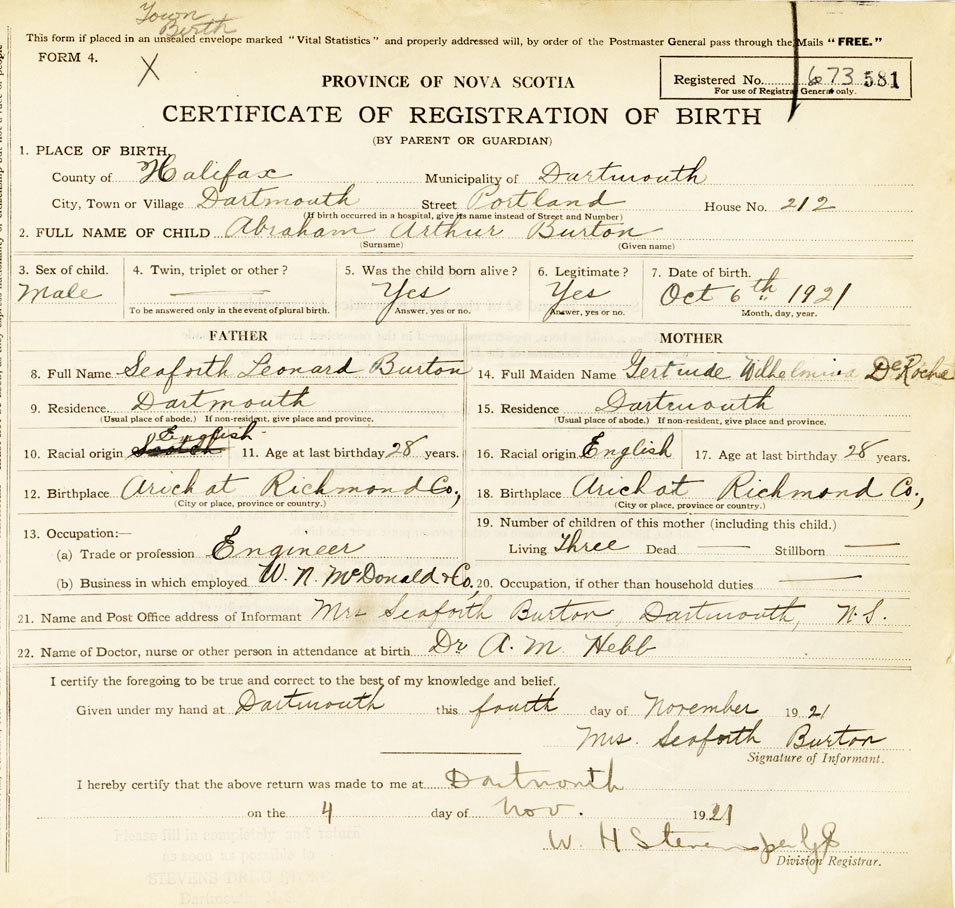 Town
Birth
This form if placed in an unsealed envelope marked "Vital Statistics" and properly addressed will, by order of the Postmaster General pass through the Mails "FREE."
FORM 4.
X
PROVINCE OF NOVA SCOTIA
Registered No. 673 581
For use of Registrar General only.
CERTIFICATE OF REGISTRATION OF BIRTH
(BY PARENT OR GUARDIAN)
1. PLACE OF BIRTH,
County of Halifax Municipality of Dartmouth
City, Town or Village Dartmouth Street Portland House No. 212
(If birth occurred in a hospital, give its name instead of Street and Number)
2. FULL NAME OF CHILD Abraham Arthur Burton
(Surname) (Given name)
3. Sex of child. 4. Twin, triplet or other? 5. Was the child born alive? 6. Legitimate? 7. Date of birth.
Male — Yes Yes Oct 6th 1921
To be answered only in the event of plural birth. Answer, yes or no. Answer, yes or no. Month, day, year.
FATHER MOTHER
8. Full Name Seaforth Leonard Burton 14. Full Maiden Name Gertrude Wilhelmina DeRoche
9. Residence Dartmouth 15. Residence Dartmouth
(Usual place of abode.) If non-resident, give place and province. (Usual place of abode.) If non-resident, give place and province.
English
10. Racial origin Scotch 11. Age at last birthday 28 years. 16. Racial origin English 17. Age at last birthday 28 years.
12. Birthplace Arichat Richmond Co., 18. Birthplace Arichat Richmond Co.,
(City or place, province or country.) (City or place, province or country.)
13. Occupation:— 19. Number of children of this mother (including this child.)
(a) Trade or profession Engineer Living Three Dead — Stillborn —
(b) Business in which employed W. N. McDonald & Co. 20. Occupation, if other than household duties —
21. Name and Post Office address of Informant Mrs Seaforth Burton, Dartmouth, N.S.
22. Name of Doctor, nurse or other person in attendance at birth Dr A. M. Hebb
I certify the foregoing to be true and correct to the best of my knowledge and belief.
Given under my hand at Dartmouth this fourth day of November 1921
Mrs. Seaforth Burton
Signature of Informant.
I hereby certify that the above return was made to me at Dartmouth
on the 4 day of Nov. 1921
W. H Stevens per
Division Registrar.
Please fill in completely and return
as soon as possible to
STEVENS DRUG STORE
Dartmouth,